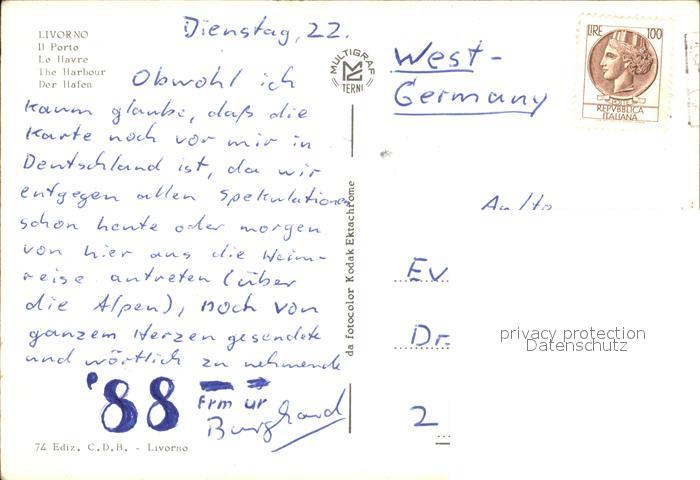 LIVORNO
Il Porto
Le Havre
The Harbour
Der Hafen
Dienstag, 22.
Obwohl ich
kaum glaube, daß die
Karte noch vor mir in
Deutschland ist, da wir
entgegen allen Spekulationen
schon heute oder morgen
von hier aus die Heim-
reise antreten (über
die Alpen), noch von
ganzem Herzen gesendete
und wörtlich zu nehmende
'88
Frm ur
Burghard
74 Ediz. C.D.B. - Livorno
MULTIGRAF
TERNI
da fotocolor Kodak Ektachrome
West-
Germany
LIRE 100
POSTE
REPVBBLICA
ITALIANA
Ev
Dr-
2
privacy protection
Datenschutz